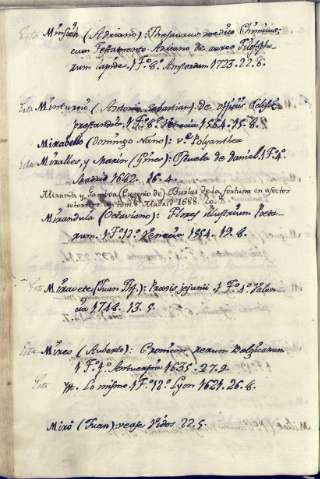 Minsich (Adriano): Thesaurus medico Chimicus,
cum Testamento Adriano de aureo Philosoph-
rum lapide. 1 Fº 8º Amsterdam 1723. 22. 8.
Minturno (Antonio Sebastian) de officiis Eclesiæ
prestandis. 1 Fº 8º Venecia 1564. 15. 8.
Mirabello (Domingo Nano): vº Polyanthea
Miralles, y Marin (Gines): Escuela de Daniel. 1 Fº 4º
Madrid 1682. 16. 4.
Miranda y Gamboa (Eugenio de) Burlas de la fortuna en afectos
Madrid 1688. 20. 8.
Mirandula (Octaviano): Flores illustrium Poeta-
rum. 1 Fº 12º Venecia 1554. 19. 8.
Miravete (Juan): Praxis jejunii. 1 Fº 4º Valen-
cia 1748. 13. 5.
Mireo (Auberto): Cronicon rerum Belgicarum
1 Fº 4º Antuerpia 1635. 27. 2.
Yt. Lo mismo. 1 Fº 12º Lyon 1621. 26. 8.
Miró (Juan) vease Vidos 22. 5.